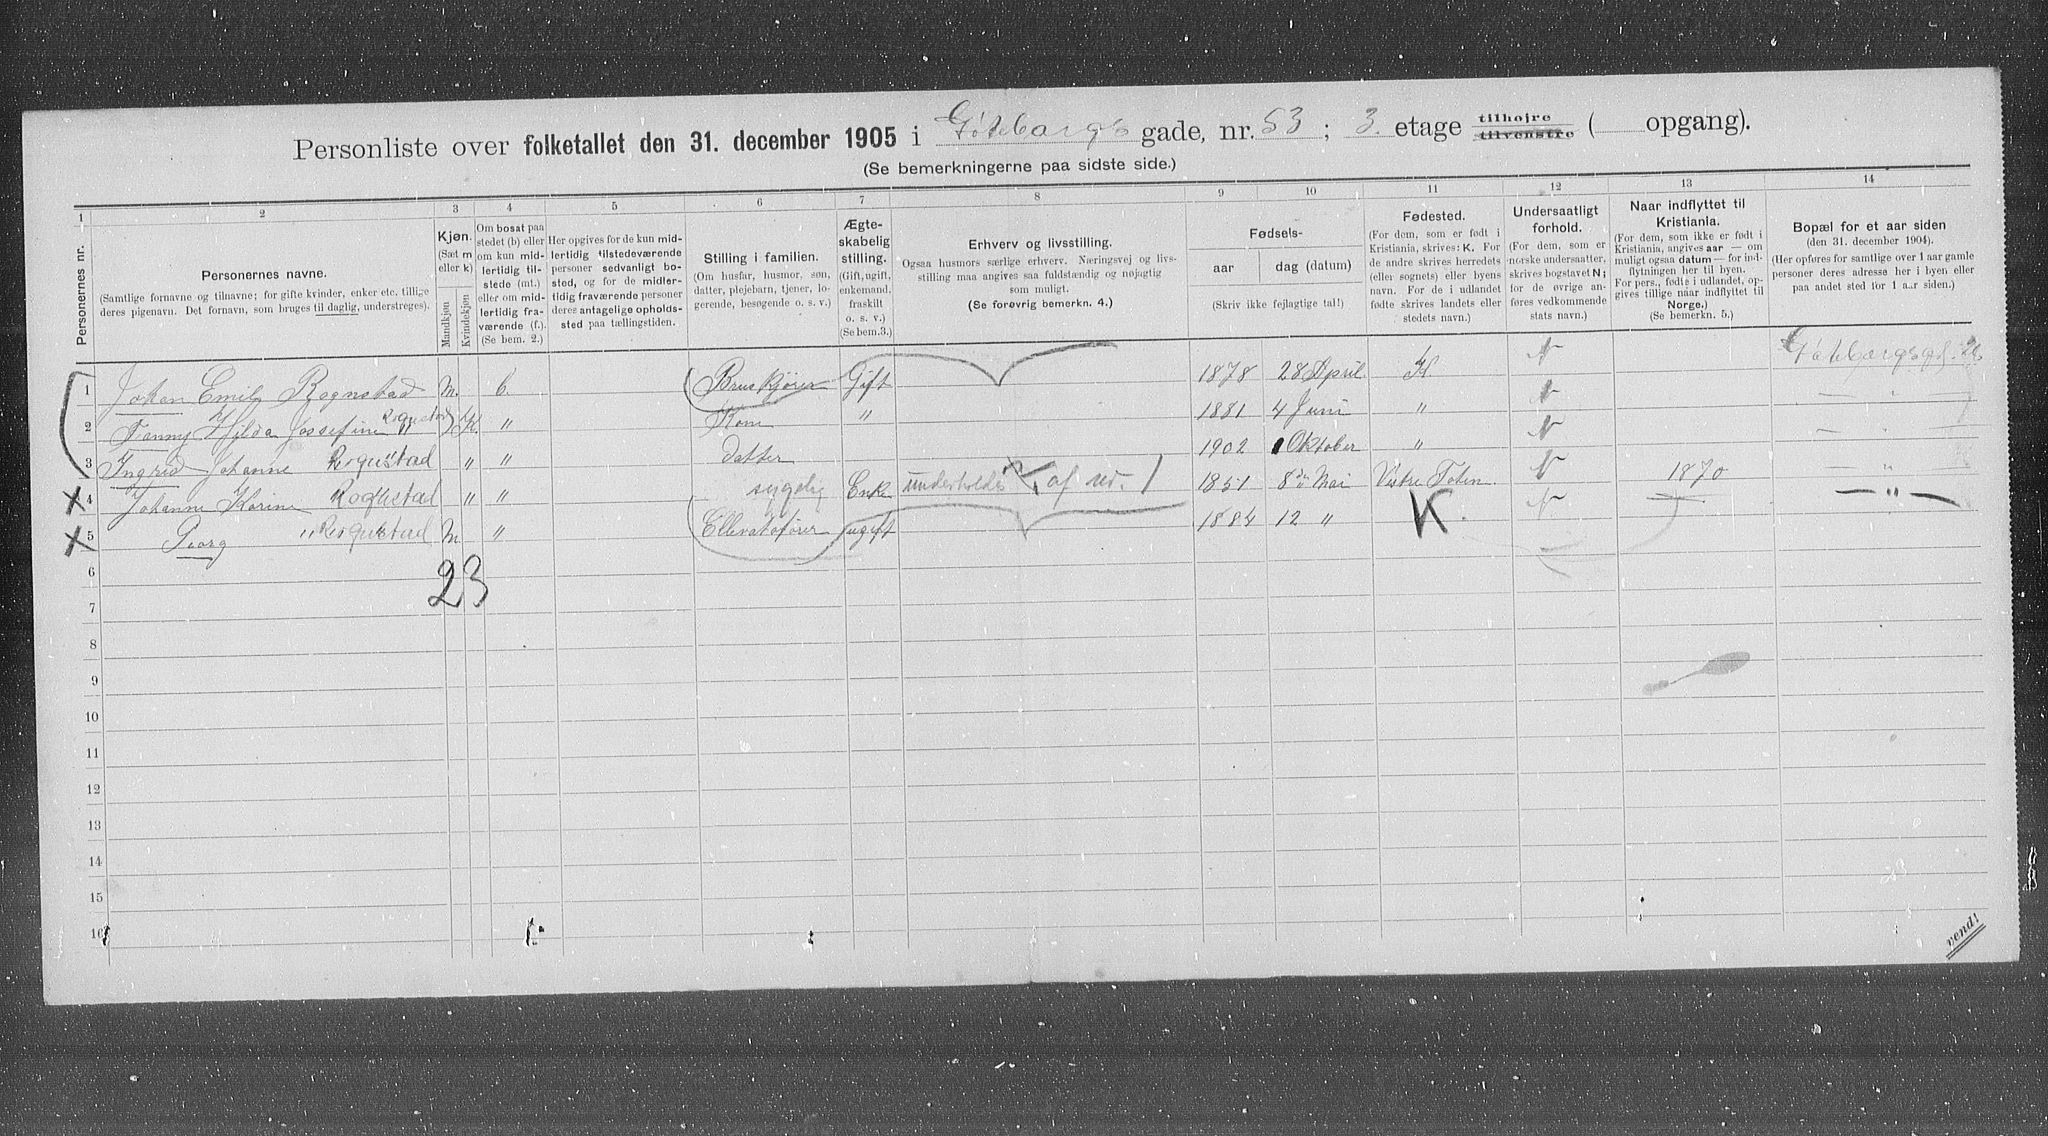 Personliste over folketallet den 31. december 1905 i Göteborgs gade, nr. 53; 3. etage tilhøjre tilvenstre ( opgang).
(Se bemerkningerne paa sidste side.)
1 2 3 4 5 6 7 8 9 10 11 12 13 14
Personernes nr.
Personernes navne.
(Samtlige fornavne og tilnavne; for gifte kvinder, enker etc. tillige deres pigenavn. Det fornavn, som bruges til daglig, understreges).
Kjøn.
(Sæt m eller k).
Mandkjøn
Kvindekjøn
Om bosat paa stedet (b) eller om kun midlertidig tilstede (mt.) eller om midlertidig fraværende (f.).
(Se bem. 2.)
Her opgives for de kun midlertidig tilstedeværende personer sedvanligt bosted, og for de midlertidig fraværende personer deres antagelige opholdssted paa tællingstiden.
Stilling i familien.
(Om husfar, husmor, søn, datter, plejebarn, tjener, logerende, besøgende o. s. v.)
Ægteskabelig stilling.
(Gift, ugift, enkemand, fraskilt o. s. v.)
(Se bem. 3.)
Erhverv og livsstilling.
Ogsaa husmors særlige erhverv. Næringsvej og livsstilling maa angives saa fuldstændig og nøjagtig som muligt.
(Se forøvrig bemerkn. 4.)
Fødsels-
aar
dag (datum)
(Skriv ikke fejlagtige tal!)
Fødested.
(For dem, som er født i Kristiania, skrives: K. For de andre skrives herredets (eller sognets) eller byens navn. For de i udlandet fødte skrives landets eller stedets navn.)
Undersaatligt forhold.
(For dem, som er norske undersaatter, skrives bogstavet N; for de øvrige anføres vedkommende stats navn.)
Naar indflyttet til Kristiania.
(For dem, som ikke er født i Kristiania, angives aar — om muligt ogsaa datum — for indflytningen her til byen. For pers., fødte i udlandet, opgives tillige naar indflyttet til Norge.)
(Se bemerkn. 5.)
Bopæl for et aar siden
(den 31. december 1904).
(Her opføres for samtlige over 1 aar gamle personer deres adresse her i byen eller paa andet sted for 1 aar siden.)
1 Johan Emil Rognstad m. b. Bruskjører Gift 1878 28 April K N Göteborgsgd. 26
2 Fanny Hilda Jossefine " Rognstad K. " Kone " 1881 4 Juni " N — " —
3 Ingrid Johanne Rognstad " " datter 1902 1 Oktober " N — " —
4 Johanne Karine Rognstad " " sygelig Enke underholdes af nr. 1 1851 8de Mai Vestre Toten N 1870 — " —
5 Georg " Rognstad m " Ellevatofører ugift 1884 12 " K. N — " —
23
6
7
8
9
10
11
12
13
14
15
16
vend!